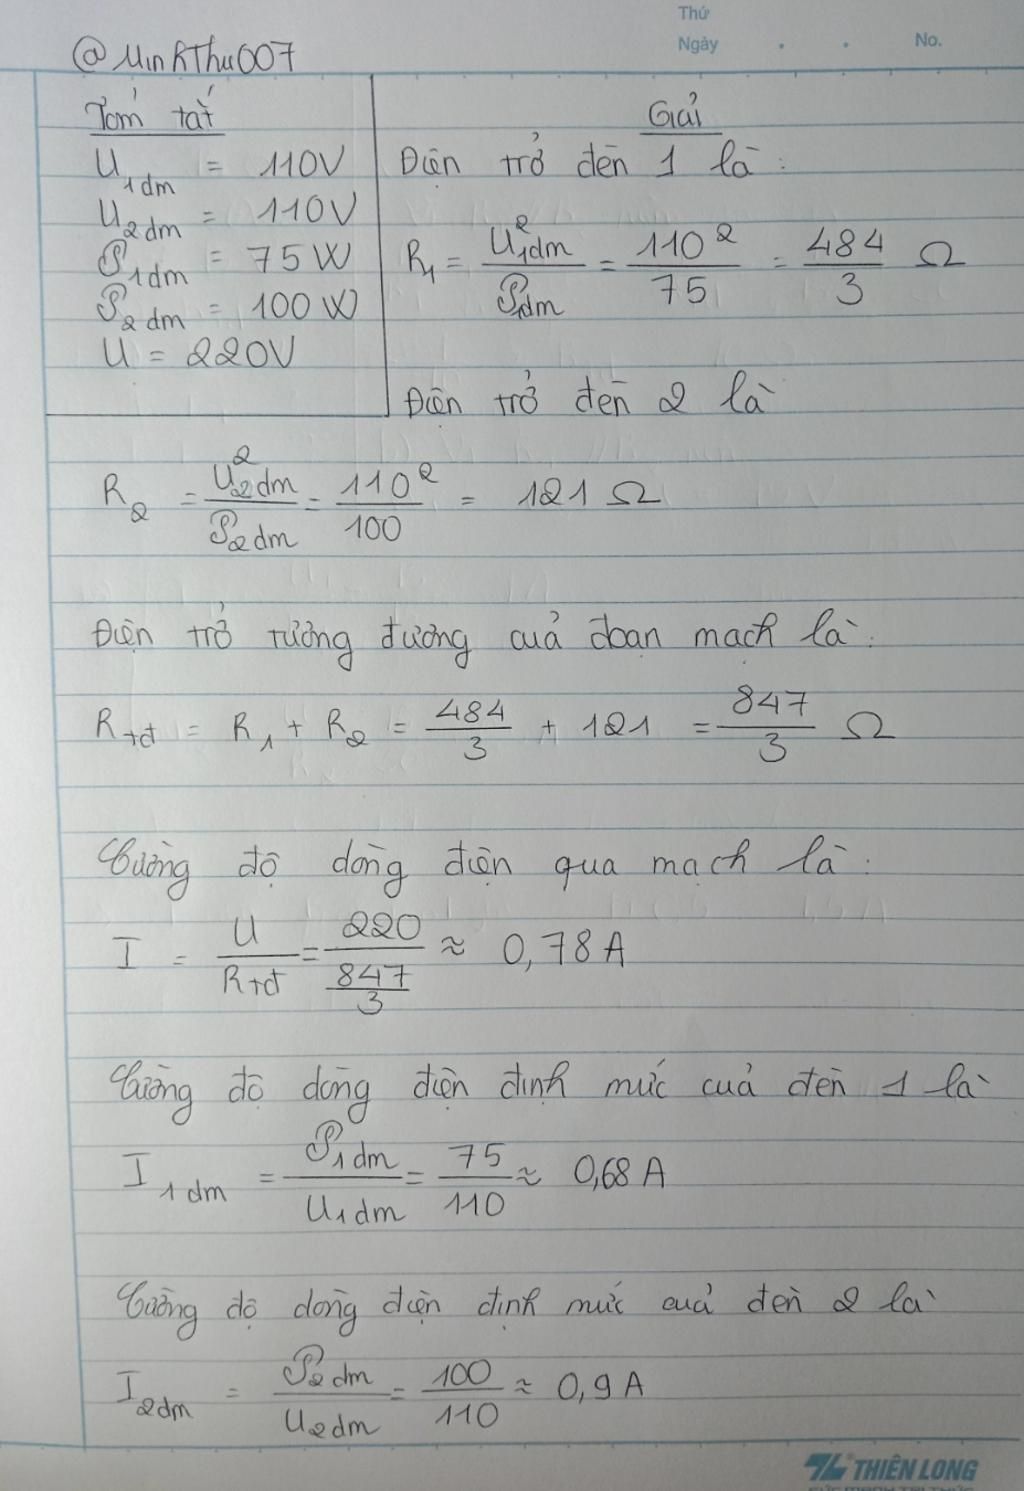 Thứ
Ngày . . No.
@MinhThu007
Tóm tắt
U1dm = 110V
U2dm = 110V
P1dm = 75W
P2dm = 100W
U = 220V
Giải
Điện trở đèn 1 là :
R1 = U1dm² / P1dm = 110² / 75 = 484/3 Ω
Điện trở đèn 2 là
R2 = U2dm² / P2dm = 110² / 100 = 121 Ω
Điện trở tương đương của đoạn mạch là :
Rtđ = R1 + R2 = 484/3 + 121 = 847/3 Ω
Cường độ dòng điện qua mạch là :
I = U / Rtđ = 220 / (847/3) ≈ 0,78 A
Cường độ dòng điện định mức của đèn 1 là
I1dm = P1dm / U1dm = 75 / 110 ≈ 0,68 A
Cường độ dòng điện định mức của đèn 2 là
I2dm = P2dm / U2dm = 100 / 110 ≈ 0,9 A
THIÊN LONG